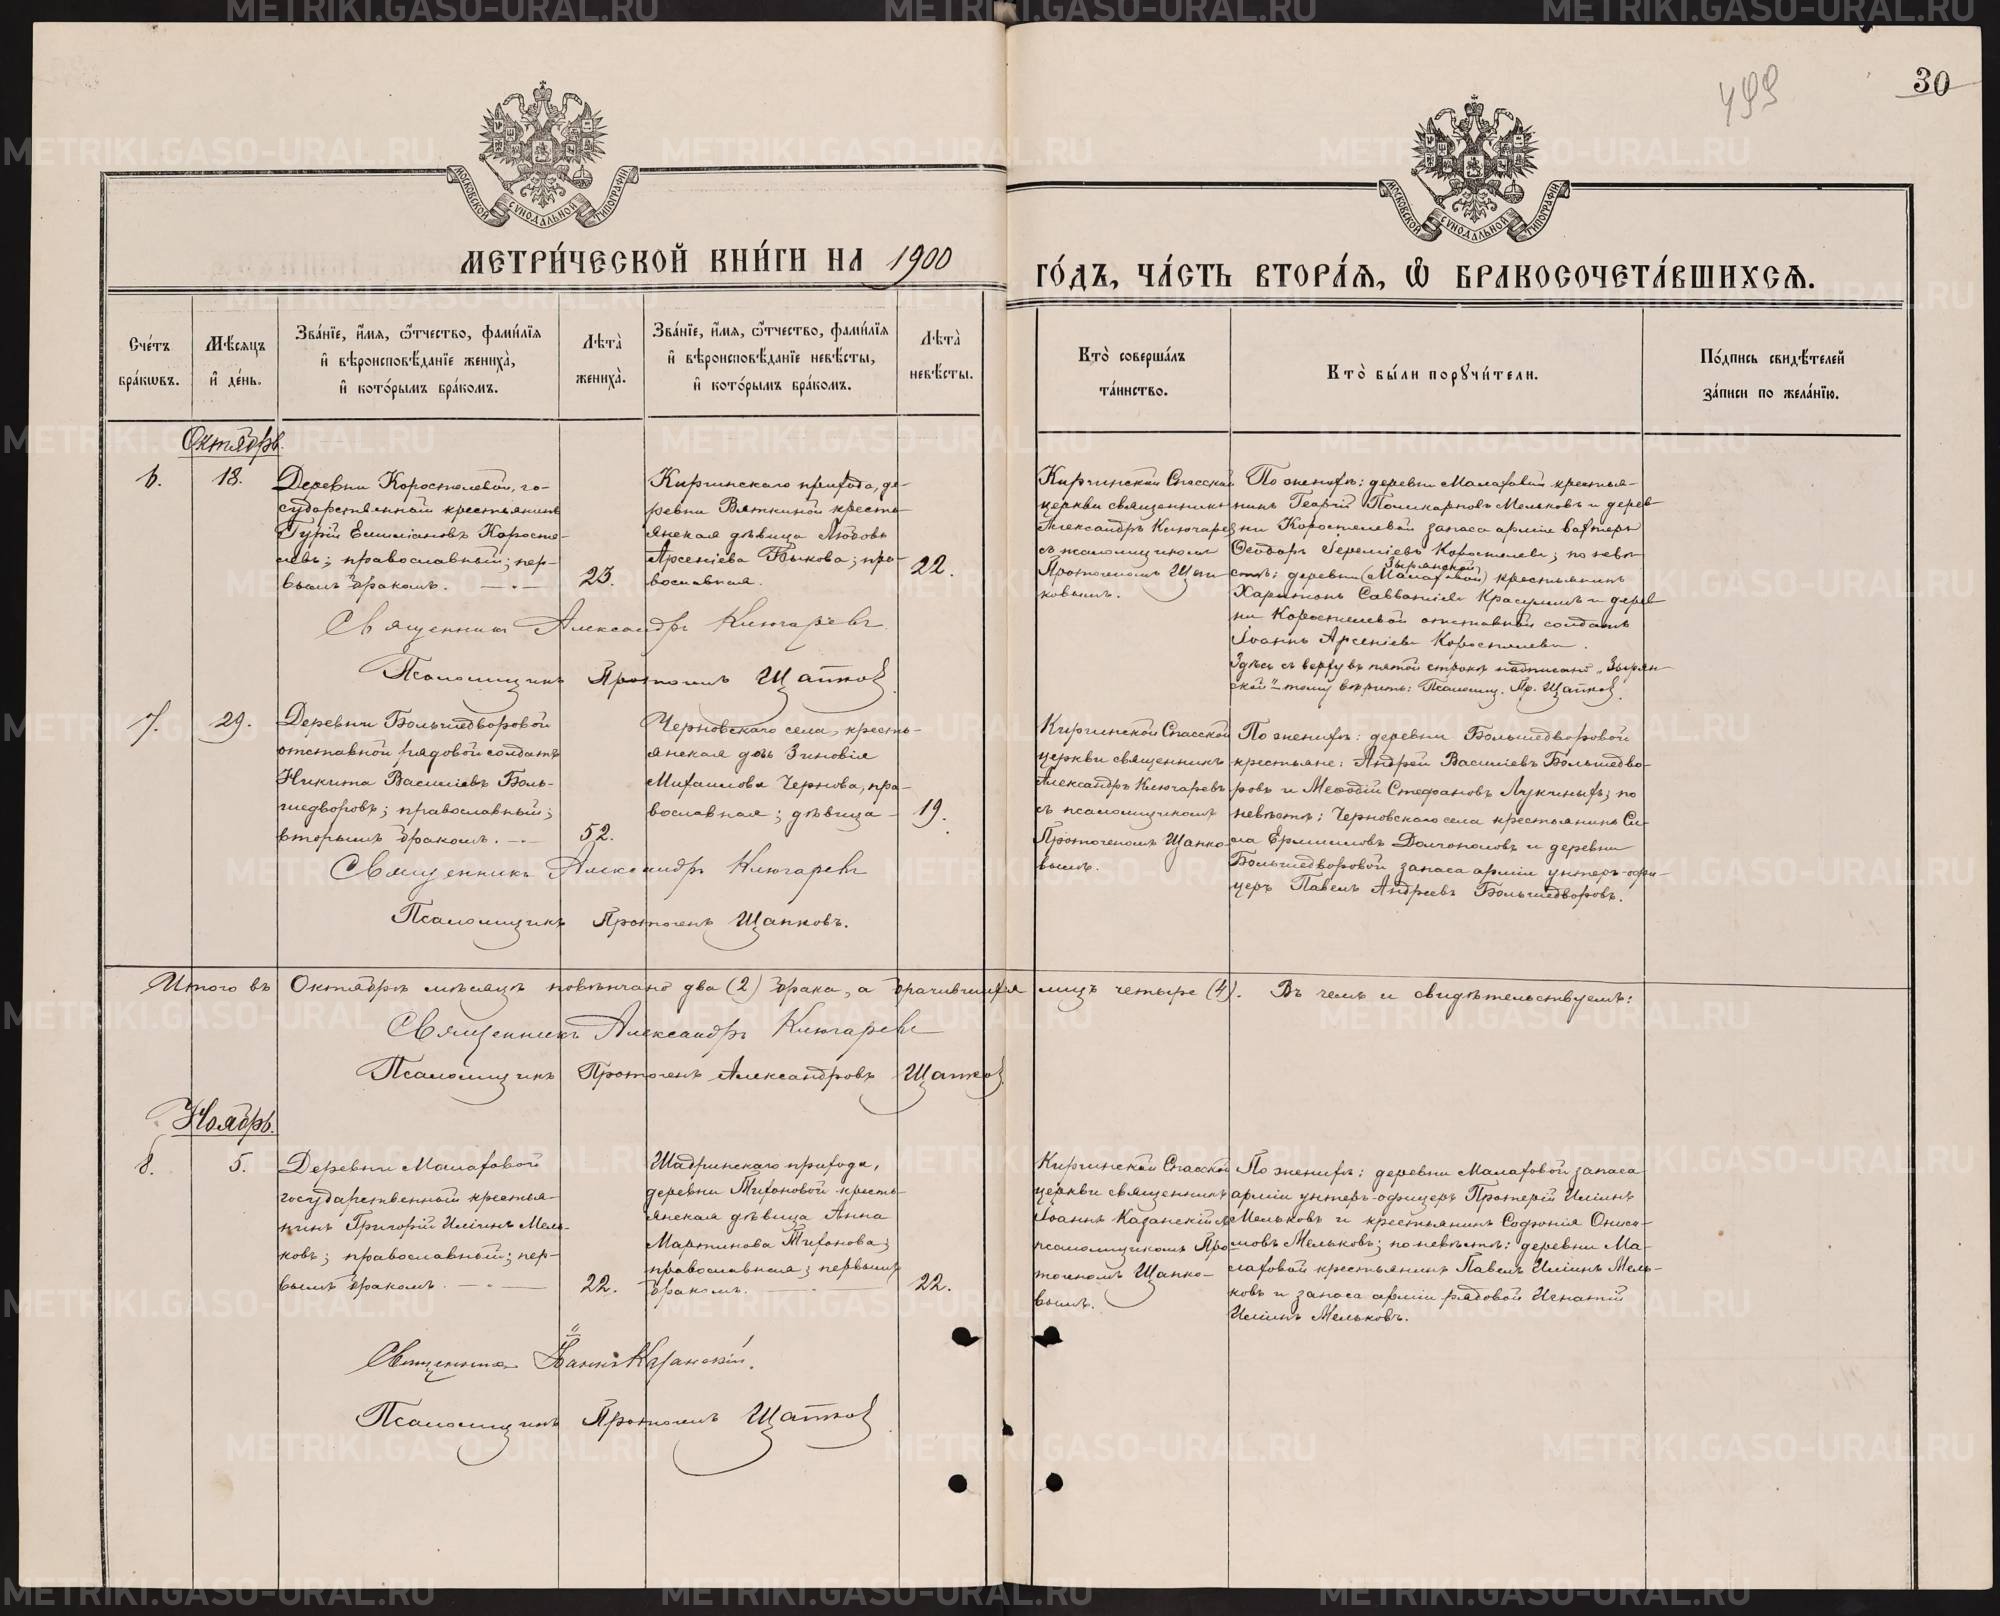 499
30
МОСКОВСКОЙ СУНОДАЛЬНОЙ ТИПОГРАФІИ
МОСКОВСКОЙ СУНОДАЛЬНОЙ ТИПОГРАФІИ
МЕТРИ́ЧЕСКОЙ КНИ́ГИ НА 1900
ГО́ДЪ, ЧА́СТЬ ВТОРА́Я, Ѡ БРАКОСОЧЕТА́ВШИХСѦ.
Сче́тъ
бра́кѡвъ.
Мѣсяцъ
и де́нь.
Зва́нїе, и҆́мя, ѻ҆́тчество, фами́лїя
и҆ вѣроисповѣ́данїе жениха̀,
и҆ кото́рымъ бра́комъ.
Лѣта̀
жениха̀.
Зва́нїе, и҆́мя, ѻ҆́тчество, фами́лїя
и҆ вѣроисповѣ́данїе невѣ́сты,
и҆ кото́рымъ бра́комъ.
Лѣта̀
невѣ́сты.
Кто̀ соверша́лъ
та́инство.
Кто̀ бы́ли порꙋчи́тели.
По́дпись свидѣ́телей
за́писи по жела́нїю.
Октябрь.
6.
18.
Деревни Коростелевой, го-
сударственный крестьянинъ
Гурій Емиліановъ Коросте-
левъ; православный; пер-
вымъ бракомъ.
23.
Киргинскаго прихода, де-
ревни Вяткиной кресть-
янская дѣвица Любовь
Арсеніева Быкова; пра-
вославная.
22.
Киргинской Спасской
церкви священникъ
Александръ Ключаревъ
съ псаломщикомъ
Протогеномъ Щап-
ковымъ.
По женихѣ: деревни Малаховой крестья-
нинъ Георгій Поликарповъ Мельковъ и дерев-
ни Коростелевой запаса арміи вахтеръ
Ѳеодоръ Іереміевъ Коростелевъ; по невѣ-
Зырянской
стѣ: деревни (Малаховой) крестьянинъ
Харитонъ Савватіевъ Красулинъ и дерев-
ни Коростелевой отставной солдатъ
Іоаннъ Арсеніевъ Коростелевъ.
Здѣсь съ верху въ пятой строкѣ надписано „Зырян-
ской“ – тому вѣрить: Псаломщ. Пр. Щапковъ.
Священникъ Александръ Ключаревъ
Псаломщикъ Протогенъ Щапковъ
7.
29.
Деревни Большедворовой
отставной рядовой солдатъ
Никита Василіевъ Боль-
шедворовъ; православный;
вторымъ бракомъ.
52.
Черновскаго села, кресть-
янская дочь Зиновія
Михаилова Чернова, пра-
вославная; дѣвица
19.
Киргинской Спасской
церкви священникъ
Александръ Ключаревъ
съ псаломщикомъ
Протогеномъ Щапко-
вымъ.
По женихѣ: деревни Большедворовой
крестьяне: Андрей Василіевъ Большедво-
ровъ и Меѳодій Стефановъ Лукиныхъ; по
невѣстѣ: Черновскаго села крестьянинъ Си-
ла Ермиловъ Долгополовъ и деревни
Большедворовой запаса арміи унтеръ-офи-
церъ Павелъ Андреевъ Большедворовъ.
Священникъ Александръ Ключаревъ
Псаломщикъ Протогенъ Щапковъ.
Итого въ Октябрѣ мѣсяцѣ повѣнчано два (2) брака, а брачившихся лицъ четыре (4). Въ чемъ и свидѣтельствуемъ:
Священникъ Александръ Ключаревъ
Псаломщикъ Протогенъ Александровъ Щапковъ
Ноябрь.
8.
5.
Деревни Малаховой
государственный крестья-
нинъ Григорій Иліинъ Мель-
ковъ; православный; пер-
вымъ бракомъ.
22.
Шадринскаго прихода,
деревни Тихоновой кресть-
янская дѣвица Анна
Мартинова Тихонова;
православная; первымъ
бракомъ.
22.
Киргинской Спасской
церкви священникъ
Іоаннъ Казанскій съ
псаломщикомъ Про-
тогеномъ Щапко-
вымъ.
По женихѣ: деревни Малаховой запаса
арміи унтеръ-офицеръ Протерій Иліинъ
Мельковъ и крестьянинъ Софонія Ониси-
мовъ Мельковъ; по невѣстѣ: деревни Ма-
лаховой крестьянинъ Павелъ Иліинъ Мель-
ковъ и запаса арміи рядовой Игнатій
Иліинъ Мельковъ.
Священникъ Іоаннъ Казанскій.
Псаломщикъ Протогенъ Щапковъ
METRIKI.GASO-URAL.RU